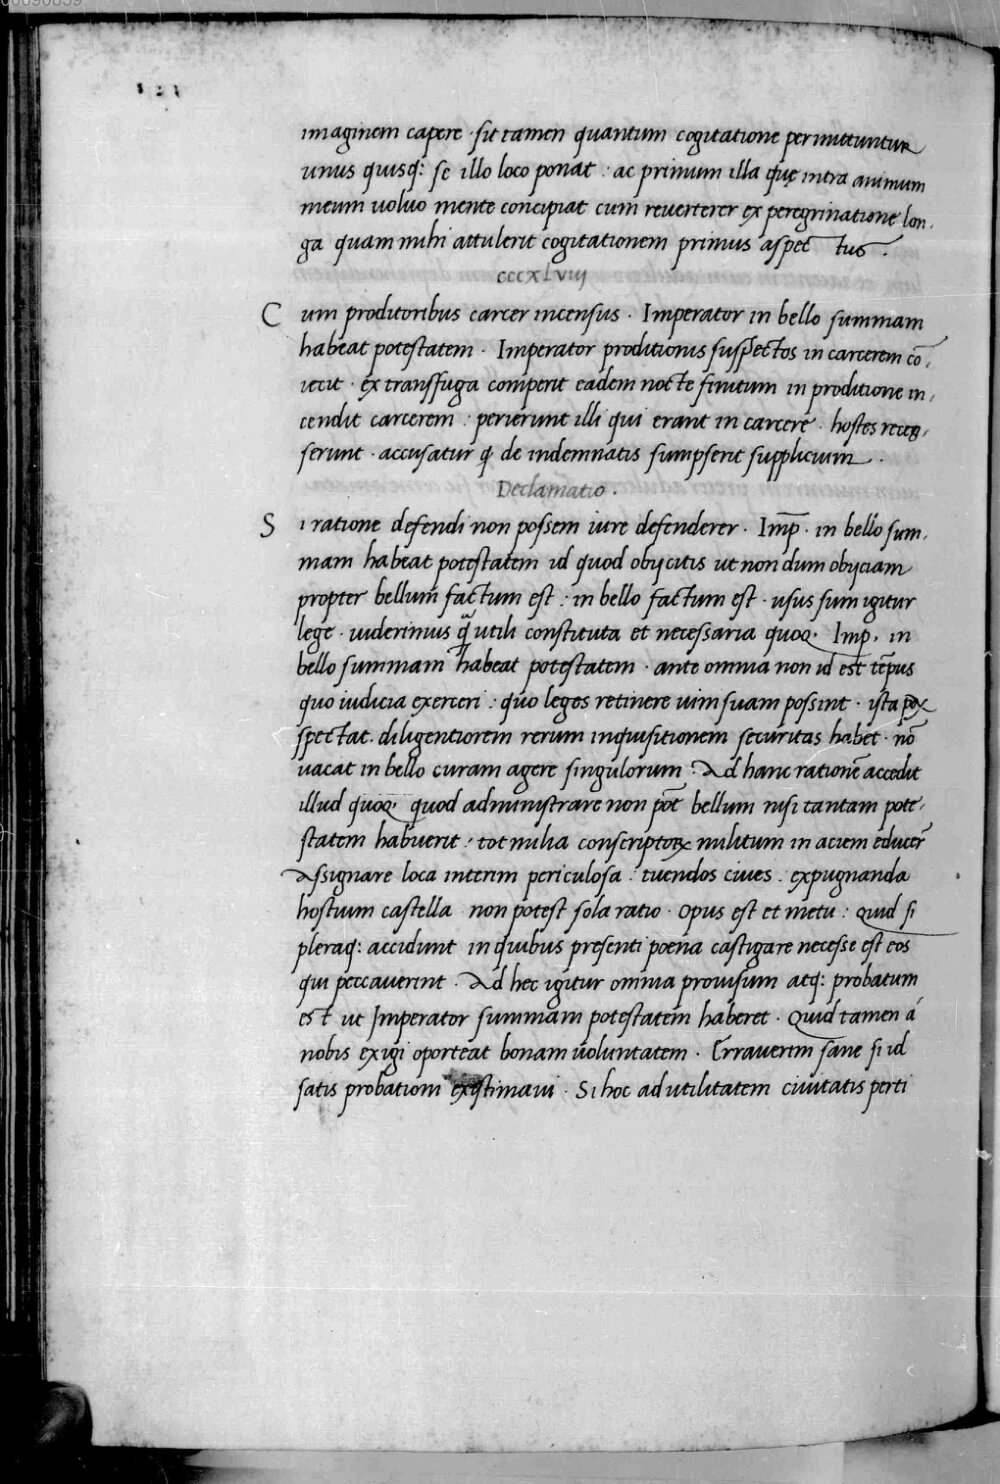 00090859
imaginem capere · sit tamen quantum cogitatione permittuntur
unus quisq: se illo loco ponat : ac primum illa quę intra animum
meum uoluo mente concipiat cum reverterer ex peregrinatione lon-
ga quam mihi attulerit cogitationem primus aspec tus .
cccxlviii
C um proditoribus carcer incensus · Imperator in bello summam
habeat potestatem · Imperator proditionis suspectos in carcerem cō-
iecit · ex transfuga comperit eadem nocte finitum in proditione in-
cendit carcerem : perierunt illi qui erant in carcere · hostes reces-
serunt · accusatur q̄ de indemnatis sumpserit supplicium .
Declamatio .
S i ratione defendi non possem iure defenderer · Imp̄ · in bello sum-
mam habeat potestatem id quod obijcitis ut non dum obijciam
propter bellum factum est : in bello factum est · usus sum igitur
lege · uiderimus q̄ utili constituta et necessaria quoq · Imp · in
bello summam habeat potestatem · ante omnia non id est tēpus
quo iudicia exerceri : quo leges retinere uim suam possint · ista pax
spectat · diligentiorem rerum inquisitionem securitas habet · nō
uacat in bello curam agere singulorum : Ad hanc rationē accedit
illud quoq · quod administrare non pōt bellum nisi tantam pote-
statem habuerit : tot milia conscriptoꝝ militum in aciem educer̄
Assignare loca interim periculosa : tuendos ciues : expugnanda
hostium castella non potest sola ratio · Opus est et metu : Quid si
pleraq: accidunt in quibus presenti poena castigare necesse est eos
qui peccauerint · Ad hec igitur omnia prouisum atq: probatum
est ut Imperator summam potestatem haberet · Quid tamen á
nobis exigi oporteat bonam uoluntatem · Errauerim sane si id
satis probationi existimaui · Si hoc ad utilitatem ciuitatis perti